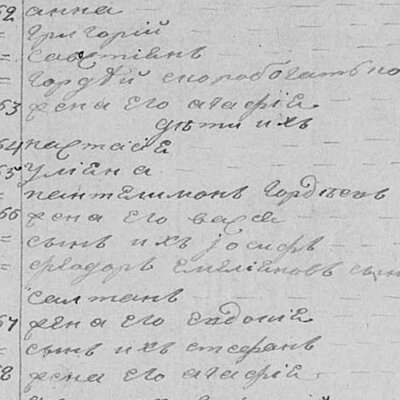 62 анна
= григорій
= савостіанъ
= гордѣй скоробогатько
63 жена его агафіѧ
дѣти ихъ
64 настасіѧ
65 уліана
= пантелимонъ гордѣевъ
66 жена его васса
= сынъ ихъ іосифъ
= феодоръ емеліановъ сынъ
салтанъ
67 жена его евдокіѧ
= сынъ ихъ стефанъ
68 жена его агафіѧ